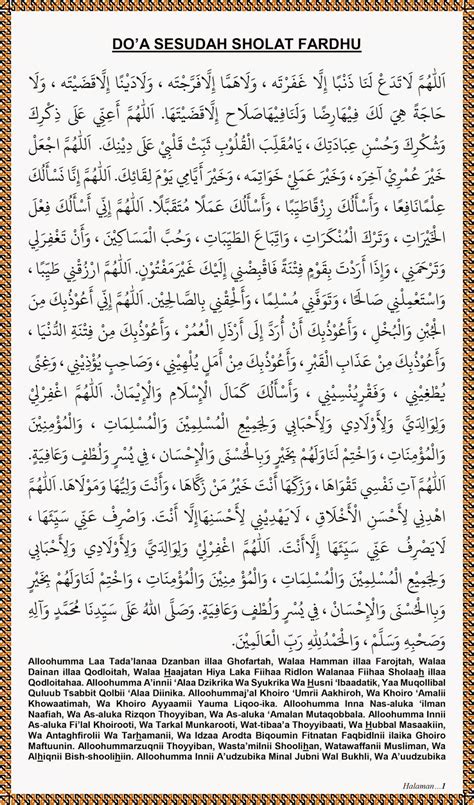 DO'A SESUDAH SHOLAT FARDHU
اَللّٰهُمَّ لَاتَدَعْ لَنَا ذَنْبًا إِلَّا غَفَرْتَه ، وَلَاهَمًّا إِلَّافَرَّجْتَه ، وَلَادَيْنًا إِلَّاقَضَيْتَه ، وَلَا
حَاجَةً هِيَ لَكَ فِيْهَارِضًا وَلَنَافِيْهَاصَلَاح إِلَّاقَضَيْتَهَا. اَللّٰهُمَّ أَعِنِّي عَلَى ذِكْرِكَ
وَشُكْرِكَ وَحُسْنِ عِبَادَتِكَ ، يَامُقَلِّبَ الْقُلُوْبِ ثَبِّتْ قَلْبِيْ عَلَى دِيْنِكَ. اَللّٰهُمَّ اجْعَلْ
خَيْرَ عُمْرِيْ آخِرَه ، وَخَيْرَ عَمَلِيْ خَوَاتِمَه ، وَخَيْرَ أَيَّامِي يَوْمَ لِقَائِكَ. اَللّٰهُمَّ إِنَّا نَسْأَلُكَ
عِلْمًانَافِعًا ، وَأَسْأَلُكَ رِزْقًاطَيِّبًا ، وَأَسْأَلُكَ عَمَلًا مُتَقَبَّلًا. اَللّٰهُمَّ إِنِّي أَسْأَلُكَ فِعْلَ
الْخَيْرَاتِ ، وَتَرْكَ الْمُنْكَرَاتِ ، وَاتِّبَاعَ الطَّيِّبَاتِ ، وَحُبَّ الْمَسَاكِيْنَ ، وَأَنْ تَغْفِرَلِي
وَتَرْحَمَنِي ، وَإِذَا أَرَدْتَ بِقَوْمٍ فِتْنَةً فَاقْبِضْنِي إِلَيْكَ غَيْرَمَفْتُوْنٍ. اَللّٰهُمَّ ارْزُقْنِي طَيِّبًا ،
وَاسْتَعْمِلْنِي صَالِحًا ، وَتَوَفَّنِي مُسْلِمًا ، وَأَلْحِقْنِي بِالصَّالِحِيْنَ. اَللّٰهُمَّ إِنِّي أَعُوْذُبِكَ مِنَ
الْجُبْنِ وَالْبُخْلِ ، وَأَعُوْذُبِكَ أَنْ أُرَدَّ إِلَى أَرْذَلِ الْعُمُرْ ، وَأَعُوْذُبِكَ مِنْ فِتْنَةِ الدُّنْيَا ،
وَأَعُوْذُبِكَ مِنْ عَذَابِ الْقَبْرِ ، وَأَعُوْذُبِكَ مِنْ أَمَلٍ يُلْهِيْنِي ، وَصَاحِبٍ يُؤْذِيْنِي ، وَغِنًى
يُطْغِيْنِي ، وَفَقْرٍيُنْسِيْنِي ، وَأَسْأَلُكَ كَمَالَ الْإِسْلَامِ وَالْإِيْمَانِ. اَللّٰهُمَّ اغْفِرْلِيْ
وَلِوَالِدَيَّ وَلِأَوْلَادِي وَلِأَحْبَابِي وَلِجَمِيْعِ الْمُسْلِمِيْنَ وَالْمُسْلِمَاتِ ، وَالْمُؤْمِنِيْنَ
وَالْمُؤْمِنَاتِ ، وَاخْتِمْ لَنَاوَلَهُمْ بِخَيْرٍ وَبِالْحُسْنَى وَالْإِحْسَانِ ، فِي يُسْرٍ وَلُطْفٍ وَعَافِيَةٍ.
اَللّٰهُمَّ آتِ نَفْسِي تَقْوَاهَا ، وَزَكِّهَا أَنْتَ خَيْرُ مَنْ زَكَّاهَا ، وَأَنْتَ وَلِيُّهَا وَمَوْلَاهَا. اَللّٰهُمَّ
اهْدِنِي لِأَحْسَنِ الْأَخْلَاقِ ، لَايَهْدِيْنِي لِأَحْسَنِهَاإِلَّا أَنْتَ. وَاصْرِفْ عَنِّي سَيِّئَهَا ،
لَايَصْرِفُ عَنِّي سَيِّئَهَا إِلَّاأَنْتَ. اَللّٰهُمَّ اغْفِرْلِيْ وَلِوَالِدَيَّ وَلِأَوْلَادِي وَلِأَحْبَابِي
وَلِجَمِيْعِ الْمُسْلِمِيْنَ وَالْمُسْلِمَاتِ ، وَالْمُؤْمِنِيْنَ وَالْمُؤْمِنَاتِ ، وَاخْتِمْ لَنَاوَلَهُمْ بِخَيْرٍ
وَبِالْحُسْنَى وَالْإِحْسَانِ ، فِي يُسْرٍ وَلُطْفٍ وَعَافِيَةٍ. وَصَلَّى اللهُ عَلَى سَيِّدِنَا مُحَمَّدٍ وَآلِهِ
وَصَحْبِهِ وَسَلَّمْ ، وَالْحَمْدُ لِلّٰهِ رَبِّ الْعَالَمِيْنَ.
Alloohumma Laa Tada'lanaa Dzanban illaa Ghofartah, Walaa Hamman illaa Farojtah, Walaa
Dainan illaa Qodloitah, Walaa Haajatan Hiya Laka Fiihaa Ridlon Walanaa Fiihaa Sholaah illaa
Qodloitahaa. Alloohumma A'innii 'Alaa Dzikrika Wa Syukrika Wa Husni 'Ibaadatik, Yaa Muqollibal
Quluub Tsabbit Qolbii 'Alaa Diinika. Alloohummaj'al Khoiro 'Umrii Aakhiroh, Wa Khoiro 'Amalii
Khowaatimah, Wa Khoiro Ayyaamii Yauma Liqoo-ika. Alloohumma Inna Nas-aluka 'ilman
Naafiah, Wa As-aluka Rizqon Thoyyiban, Wa As-aluka 'Amalan Mutaqobbala. Alloohumma Innii
As-aluka Fi'lal Khoirooti, Wa Tarkal Munkarooti, Wat-tibaa'a Thoyyibaati, Wa Hubbal Masaakiin,
Wa Antaghfirolii Wa Tarhamanii, Wa Idzaa Arodta Biqoumin Fitnatan Faqbidlnii ilaika Ghoiro
Maftuunin. Alloohummarzuqnii Thoyyiban, Wasta'milnii Shoolihan, Watawaffanii Musliman, Wa
Alhiqnii Bish-shoolihiin. Alloohumma Innii A'udzubika Minal Jubni Wal Bukhli, Wa A'uudzubika
Halaman…1